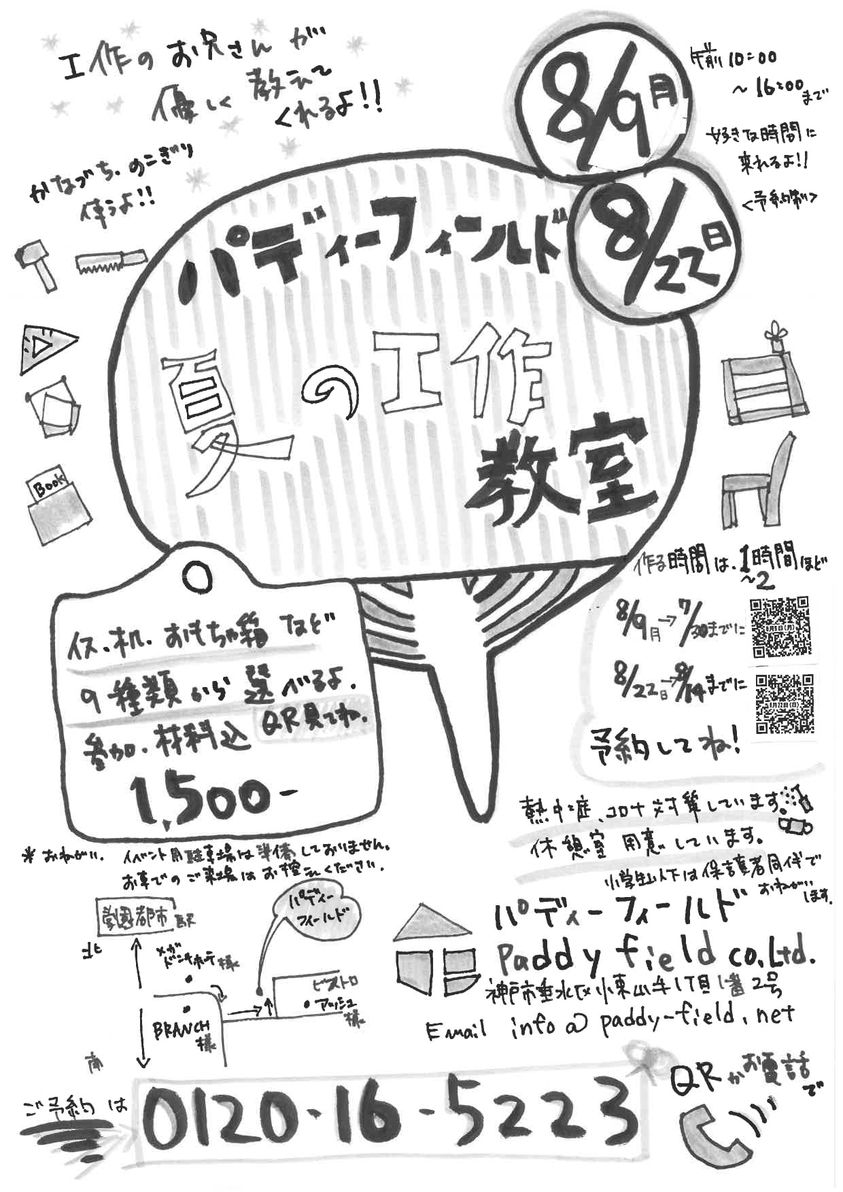 工作のお兄さんが
優しく教えて
くれるよ!!
かなづち、のこぎり
使うよ!!
8/9月
8/22日
午前10:00
~16:00まで
好きな時間に
来れるよ!!
<予約制>
パディーフィールド
夏の工作
教室
Book
イス、机、おもちゃ箱など
9種類から選べるよ。
QR見てね。
参加、材料込
1,500-
作る時間は、1時間ほど
~2
8/9月→7/30までに
8/22日→8/14までに
予約してね!
熱中症、コロナ対策しています。
休憩室用意しています。
小学生以下は保護者同伴で
おねがいします。
*おねがい。イベント用駐車場は準備しておりません。
お車でのご来場はお控えください。
学園都市駅
北
メガ
ドンキホーテ様
パディー
フィールド
BRANCH
様
ビストロ
アッシュ
様
南
パディーフィールド
Paddy field co.Ltd.
神戸市垂水区小束山手1丁目1番2号
Email info@paddy-field.net
ご予約は
0120-16-5223
QRかお電話で